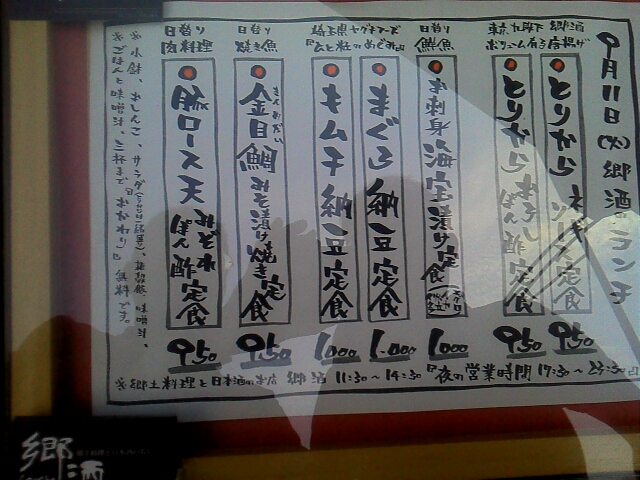 9月11日(火)郷酒ランチ
東京九段下 郷酒
ボリューム有る唐揚げ
とりから ネギ
定食
950
とりから おろし
ぽん酢 定食
950
日替り
鮮魚
お刺身 海宝漬け 定食
1000
まぐろ納豆定食
1.000
キムチ納豆定食
1000
日替り
焼き魚
金目鯛 みそ漬け焼き 定食
きんめだい
950
日替り
肉料理
豚ロース天 みぞれ
ぽん酢 定食
950
※小鉢、おしんこ、サラダ
※ごはんと味噌汁、三杯まで『おかわり』無料です。
※郷土料理と日本酒のお店 郷酒 11:30~14:30 『夜の営業時間 17:30~23:30』
郷酒